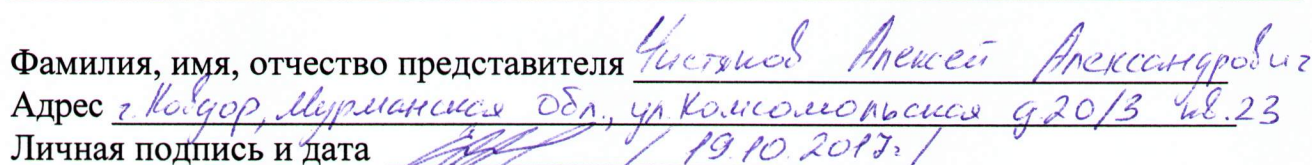 Фамилия, имя, отчество представителя Чистяков Алексей Александрович
Адрес г. Ковдор, Мурманская обл., ул. Комсомольская д.20/3 кв.23
Личная подпись и дата / 19.10.2017г /